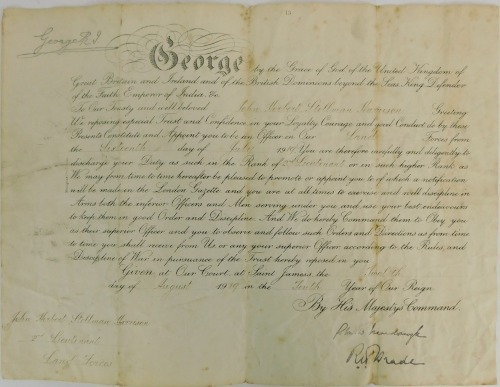 George R. I.
George by the Grace of God of the United Kingdom of
Great Britain and Ireland and of the British Dominions beyond the Seas King, Defender
of the Faith, Emperor of India, &c.
To Our Trusty and well beloved John Herbert Stillman Greeting
We reposing especial Trust and Confidence in your Loyalty Courage and good Conduct do by these
Presents Constitute and Appoint you to be an Officer in Our Land Forces from
the Sixteenth day of July 1919 You are therefore carefully and diligently to
discharge your Duty as such in the Rank of 2nd Lieutenant or in such higher Rank as
We may from time to time hereafter be pleased to promote or appoint you to of which a notification
will be made in the London Gazette and you are at all times to exercise and well discipline in
Arms both the inferior Officers and Men serving under you and use your best endeavours
to keep them in good Order and Discipline. And We do hereby Command them to Obey you
as their superior Officer and you to observe and follow such Orders and Directions as from time
to time you shall receive from Us or any your superior Officer according to the Rules and
Discipline of War in pursuance of the Trust hereby reposed in you
Given at Our Court at Saint James's the
day of August 1919 in the Tenth Year of Our Reign
By His Majesty's Command
John Herbert Stillman
2nd Lieutenant
Land Forces